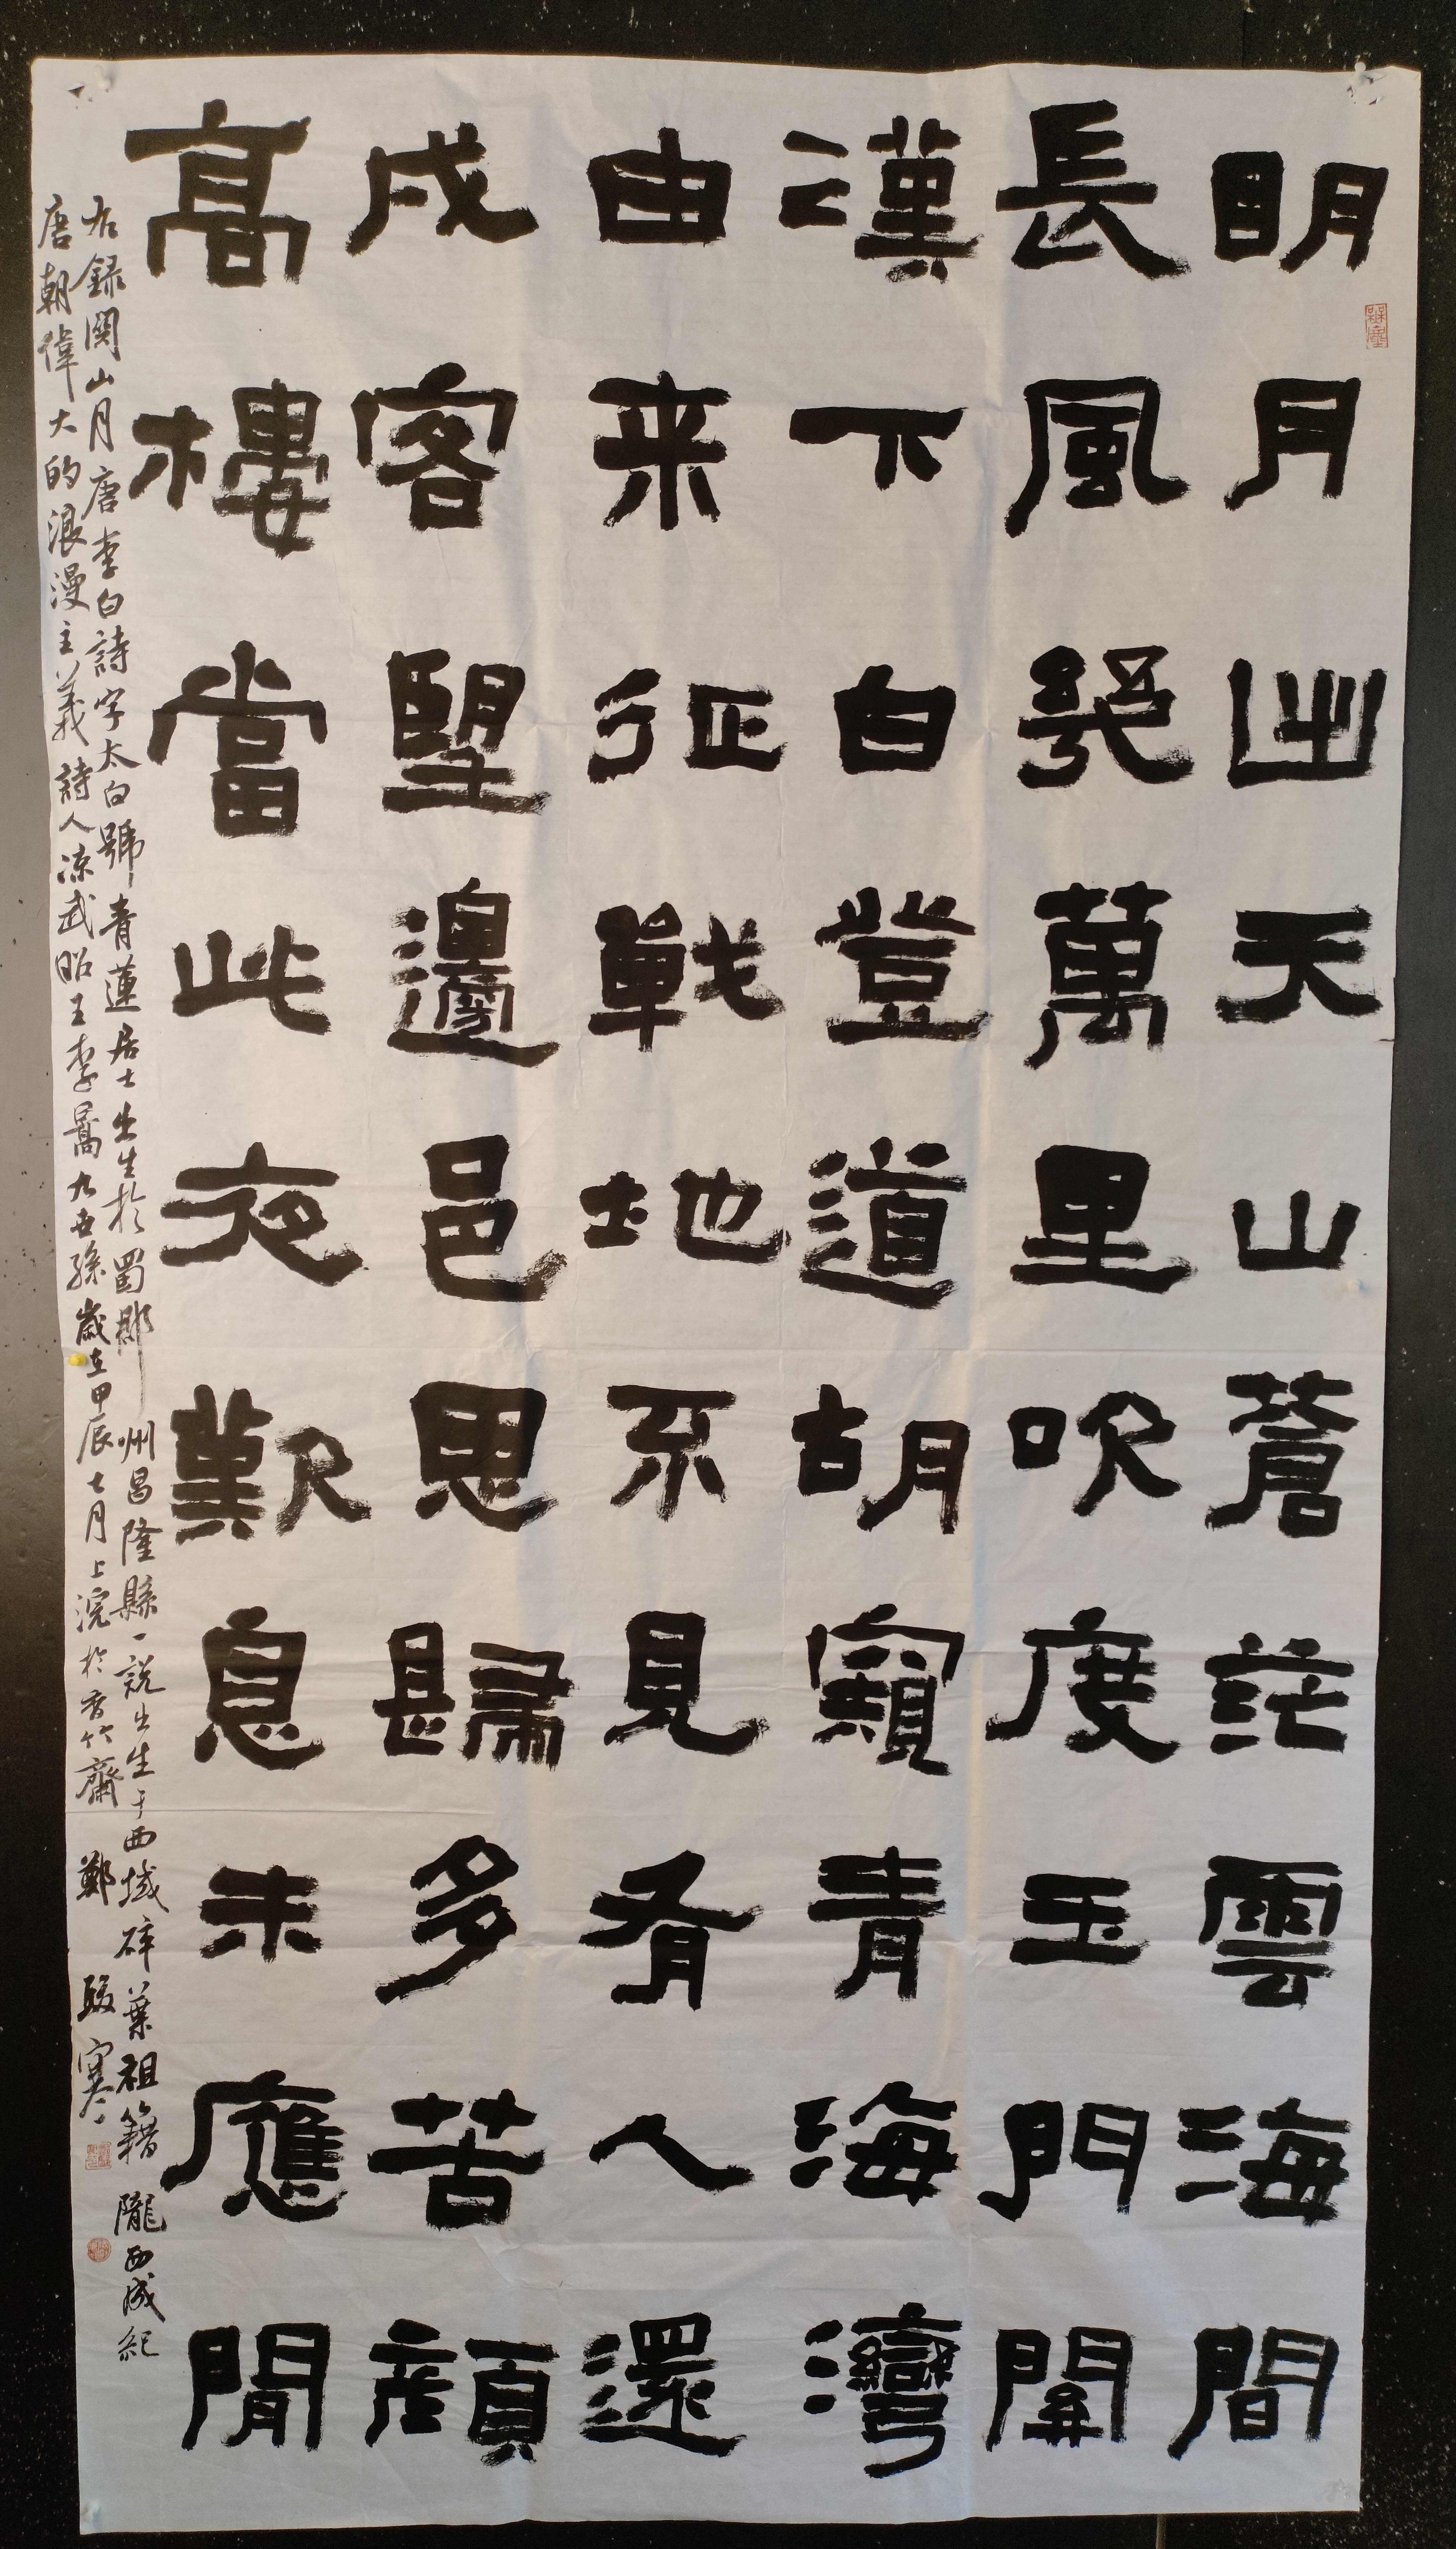 明月出天山蒼茫雲海間
長風幾萬里吹度玉門關
漢下白登道胡窺青海灣
由来征戰地不見有人還
戍客望邊邑思歸多苦顏
高樓當此夜歎息未應閒
右録関山月唐李白詩字太白號青蓮居士出生於蜀郡州昌隆縣一説出生于西域碎葉祖籍隴西成紀
唐朝偉大的浪漫主義詩人凉武昭王李暠九世孫歲在甲辰七月上浣於香竹齋 鄭駿寒